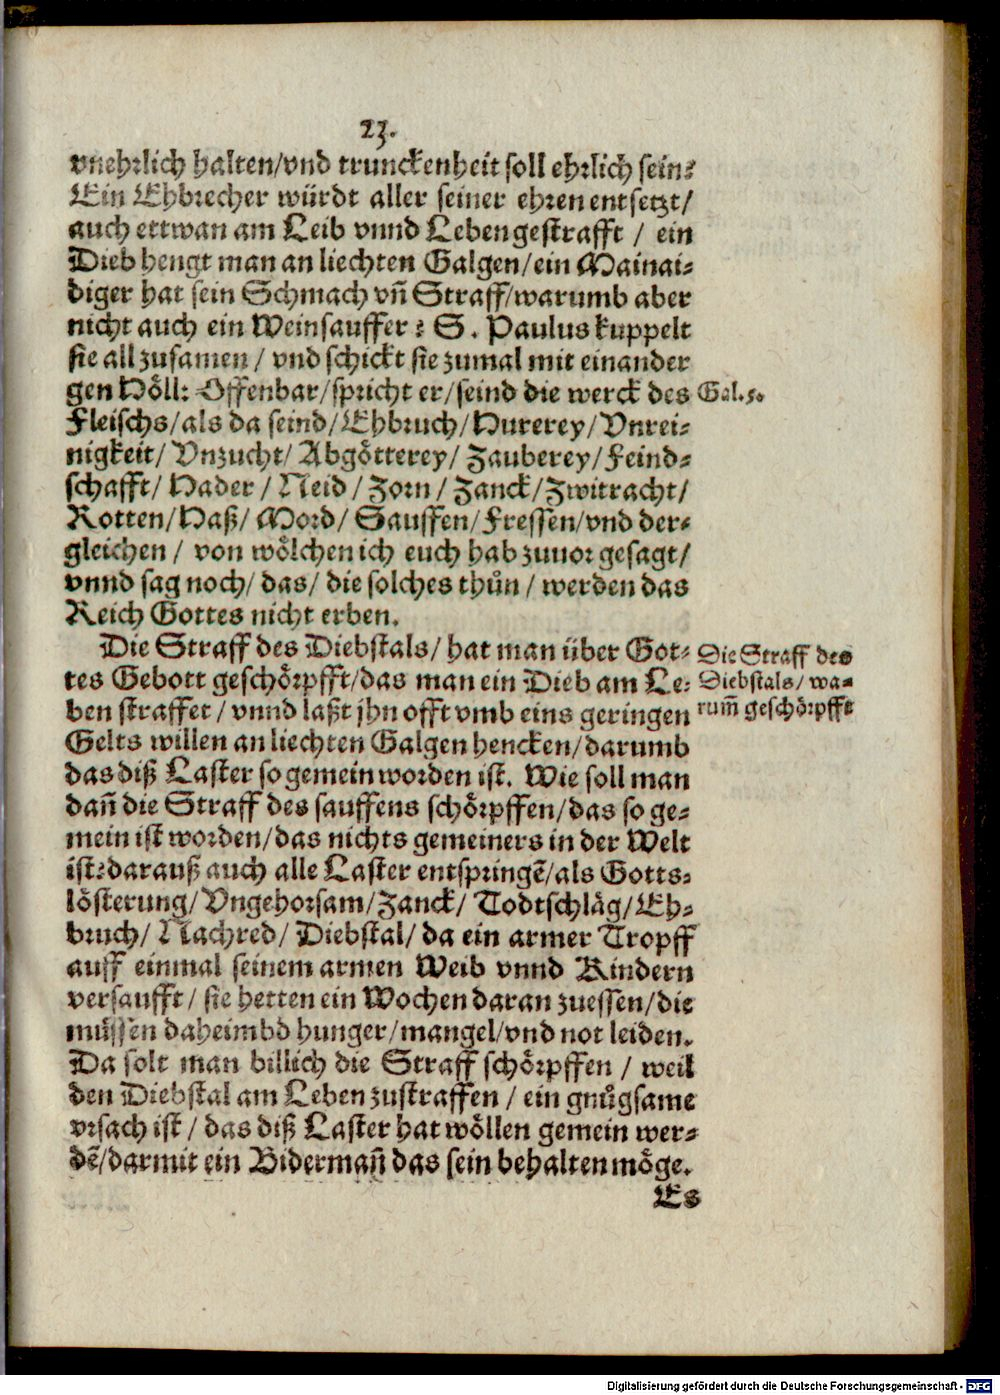 23.
vnehrlich halten/vnd trunckenheit soll ehrlich sein?
Ein Ehbrecher würdt aller seiner ehren entsetzt/
auch ettwan am Leib vnnd Leben gestrafft / ein
Dieb hengt man an liechten Galgen/ein Mainai-
diger hat sein Schmach vn̄ Straff/warumb aber
nicht auch ein Weinsauffer? S. Paulus kuppelt
sie all zusamen / vnd schickt sie zumal mit einander
gen Höll: Offenbar/spricht er/seind die werck des
Gal. 5.
Fleischs/als da seind/Ehbruch/Hurerey/Vnrei-
nigkeit/ Vnzucht/ Abgötterey/ Zauberey/Feind-
schafft/ Hader / Neid / Zorn / Zanck/Zwitracht/
Rotten/Haß/ Mord/ Sauffen/Fressen/vnd der-
gleichen / von wölchen ich euch hab zuuor gesagt/
vnnd sag noch/ das/ die solches thůn / werden das
Reich Gottes nicht erben.
Die Straff des Diebstals/ hat man über Got-
tes Gebott geschörpfft/das man ein Dieb am Le-
ben straffet / vnnd laßt jhn offt vmb eins geringen
Die Straff des
Diebstals/ wa-
rum̄ geschörpfft
Gelts willen an liechten Galgen hencken/darumb
das diß Laster so gemein worden ist. Wie soll man
dan̄ die Straff des sauffens schörpffen/das so ge-
mein ist worden/das nichts gemeiners in der Welt
ist: darauß auch alle Laster entspringē/als Gotts-
lösterung/ Vngehorsam/Zanck/ Todtschläg/Eh-
bruch/ Nachred/ Diebstal/ da ein armer Tropff
auff einmal seinem armen Weib vnnd Kindern
versaufft / sie hetten ein Wochen daran zuessen/die
müssen daheimbd hunger/mangel/vnd not leiden.
Da solt man billich die Straff schörpffen / weil
den Diebstal am Leben zustraffen / ein gnůgsame
vrsach ist / das diß Laster hat wöllen gemein wer-
dē/darmit ein Biderman̄ das sein behalten möge.
Es
Digitalisierung gefördert durch die Deutsche Forschungsgemeinschaft - DFG